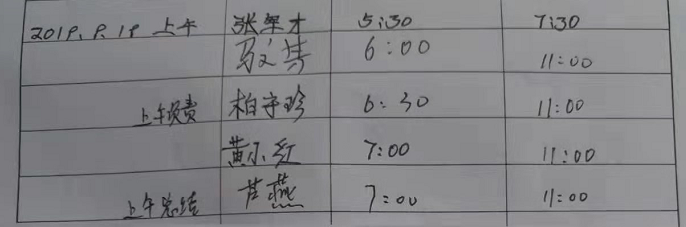 2019.9.19 上午 张军才 5:30 7:30
马文其 6:00 11:00
上午 柏守珍 6:30 11:00
黄小红 7:00 11:00
上午总结 芦燕 7:00 11:00